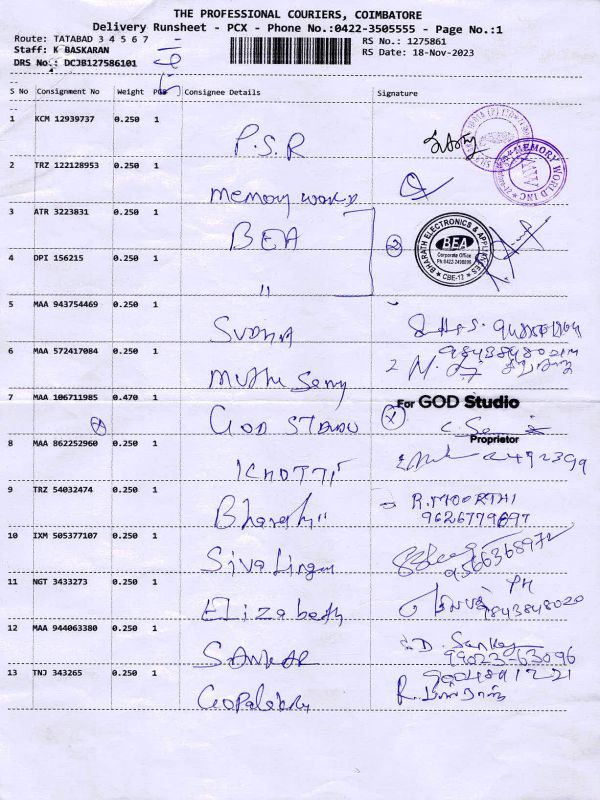 THE PROFESSIONAL COURIERS, COIMBATORE
Delivery Runsheet - PCX - Phone No.:0422-3505555 - Page No.:1
Route: TATABAD 3 4 5 6 7
RS No.: 1275861
Staff: K BASKARAN
RS Date: 18-Nov-2023
DRS No.: DCJB127586101
S No Consignment No Weight PCS Consignee Details Signature
1 KCM 12939737 0.250 1 P.S.R
2 TRZ 122128953 0.250 1 Memory World
MEMORY WORLD INC
3 ATR 3223831 0.250 1 BEA
BHARATH ELECTRONICS & APPLIANCES
BEA
Corporate Office
CBE-12
4 DPI 156215 0.250 1 "
5 MAA 943754469 0.250 1 Sudha
6 MAA 572417084 0.250 1 Muthu Samy
7 MAA 106711985 0.470 1 God Studio
For GOD Studio
Proprietor
8 MAA 862252960 0.250 1
9 TRZ 54032474 0.250 1 Bharathi R.MOORTHI
9626779097
10 IXM 505377107 0.250 1 Sivalingam
9566368972
11 NGT 3433273 0.250 1 Elizabeth PH
9843848020
12 MAA 944063380 0.250 1 Sankar D. Sankar
99023-63096
13 TNJ 343265 0.250 1